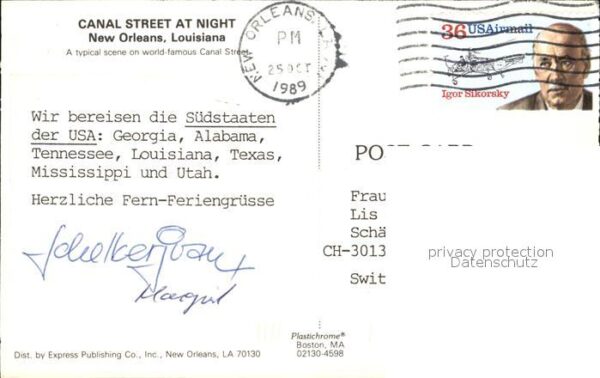 CANAL STREET AT NIGHT
New Orleans, Louisiana
A typical scene on world-famous Canal Street
NEW ORLEANS, LA
PM
25 OCT
1989
36 USAirmail
Igor Sikorsky
Wir bereisen die Südstaaten
der USA: Georgia, Alabama,
Tennessee, Louisiana, Texas,
Mississippi und Utah.
Herzliche Fern-Feriengrüsse
Margrit
POST CARD
Frau
Lis
Schä
CH-3013
Swit
privacy protection
Datenschutz
Plastichrome®
Boston, MA
02130-4598
Dist. by Express Publishing Co., Inc., New Orleans, LA 70130